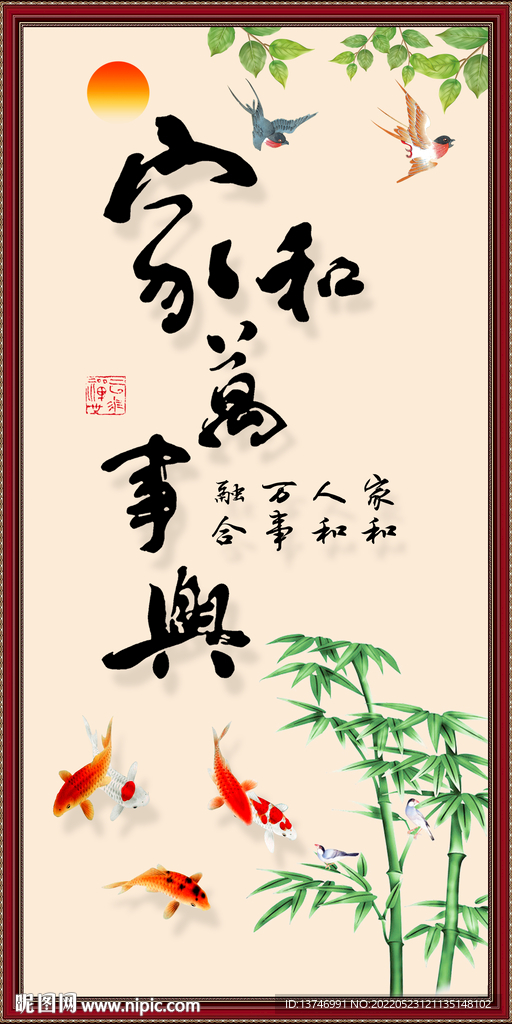 家和
萬
事
興
家和
人和
万事
融合
昵图网 www.nipic.com
ID:13746991 NO:20220523121135148102